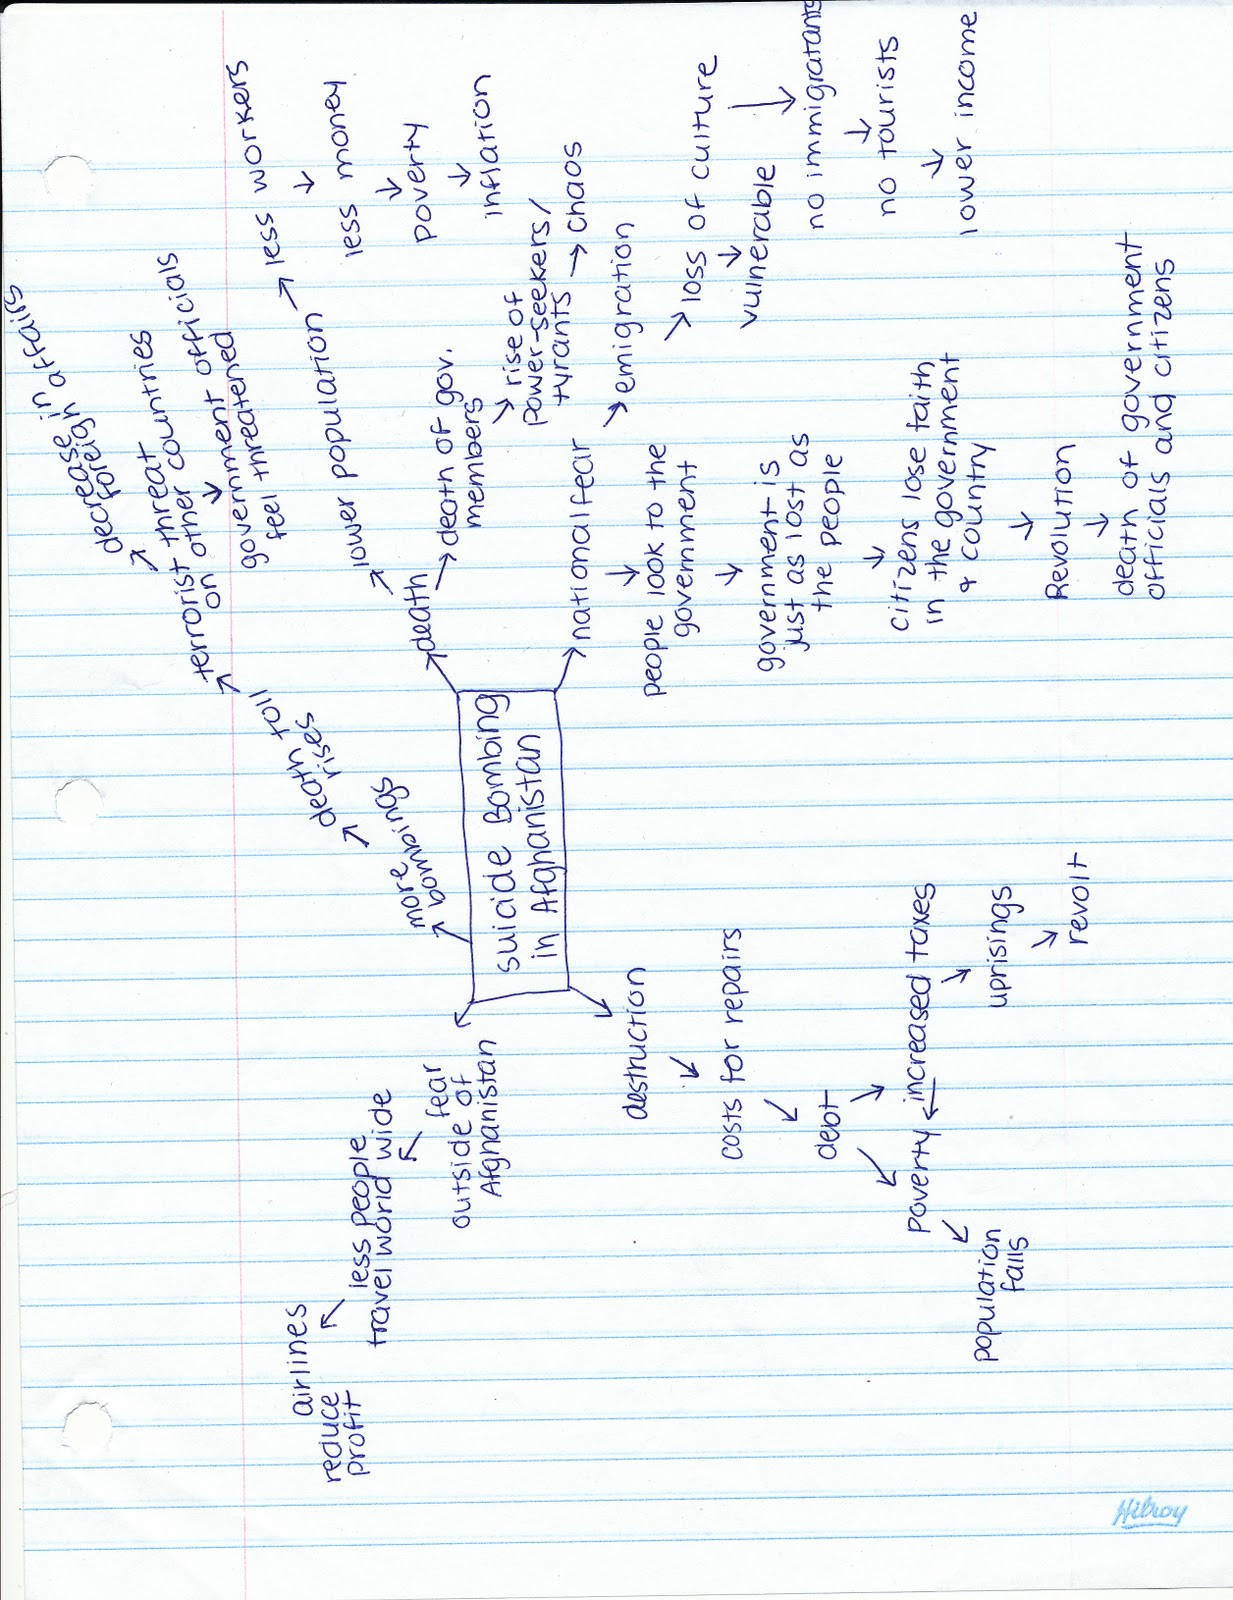 decrease in
foreign affairs
terrorist threat
on other countries
government officials
feel threatened
death toll
rises
more
bombings
lower population
less workers
less money
poverty
inflation
death
death of gov.
members
rise of
power-seekers/
tyrants
chaos
Suicide Bombing
in Afghanistan
national fear
emigration
loss of culture
vulnerable
no immigratants
no tourists
lower income
people look to the
government
government is
just as lost as
the people
citizens lose faith
in the government
& country
Revolution
death of government
officials and citizens
airlines
reduce
profit
less people
travel world wide
fear
outside of
Afghanistan
destruction
costs for repairs
debt
poverty
increased taxes
uprisings
revolt
population
falls
Hilroy